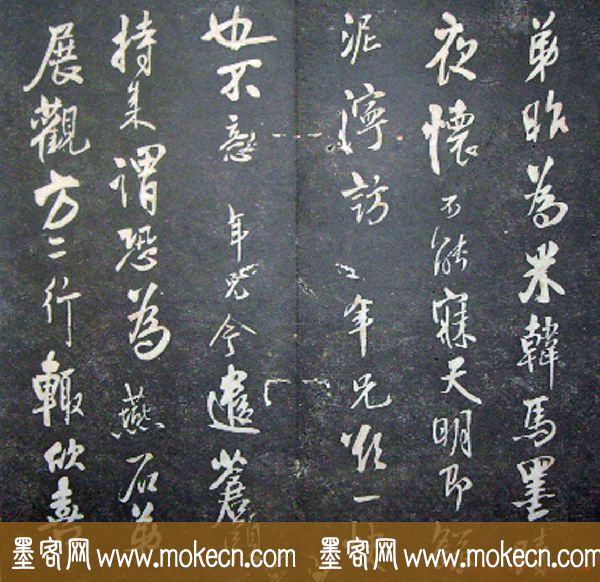 弟昨為米韓馬墨
夜懷不能寐天明即
泥濘訪年兄欲一
也不意年兄今遣蒼頭
持来謂恐為燕石萬
展觀方二行輙欣喜
墨客网 www.mokecn.com 墨客网 www.mokecn.com